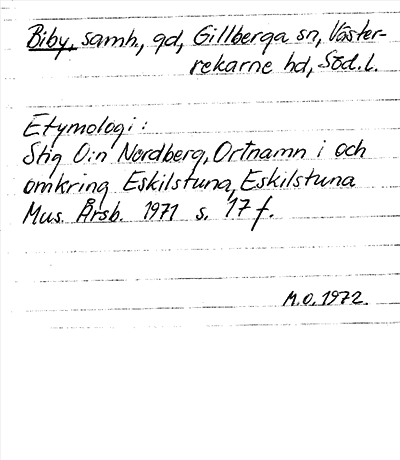 Biby, samh., gd, Gillberga sn, Väster-
rekarne hd, Söd. l.
Etymologi:
Stig O:n Nordberg, Ortnamn i och
omkring Eskilstuna, Eskilstuna
Mus. Årsb. 1971 s. 17 f.
M.O. 1972.